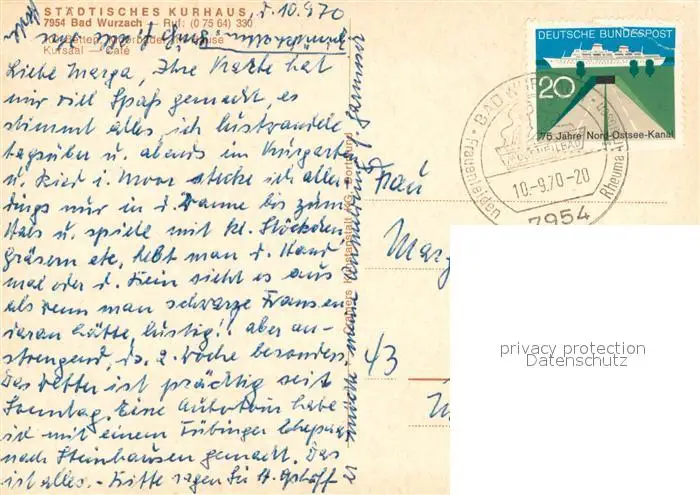 STÄDTISCHES KURHAUS,
7954 Bad Wurzach — Ruf: (0 75 64) 330
Kursaal — Café
d. 10.9.70
Liebe Marga, Ihre Karte hat
mir viel Spaß gemacht, es
stimmt alles, ich lustwandele
tagsüber u. abends im Kurgarten
u. Ried i. Moor stecke ich aller
dings nur in d. Wanne bis zum
Hals u. spiele mit kl. Stöckchen
Gräsern etc, hebt man d. Hand
mal oder d. Bein sieht es aus
als wenn man schwarze Fransen
daran hätte, lustig!! aber an-
strengend, ds. 2. Woche besonders.
Das Wetter ist prächtig seit
Sonntag. Eine Autotour habe
ich mit einem Tübinger Ehepaar
nach Steinhausen gemacht. Das
ist alles. - Bitte sagen Sie H.
er möchte meine
Cramers Kunstanstalt KG - Dortmund
DEUTSCHE BUNDESPOST
20
75 Jahre Nord-Ostsee-Kanal
BAD WURZACH
MOORHEILBAD
10.-9.70-20
Frauenleiden
Rheuma
7954
Frau
Marg
43
privacy protection
Datenschutz